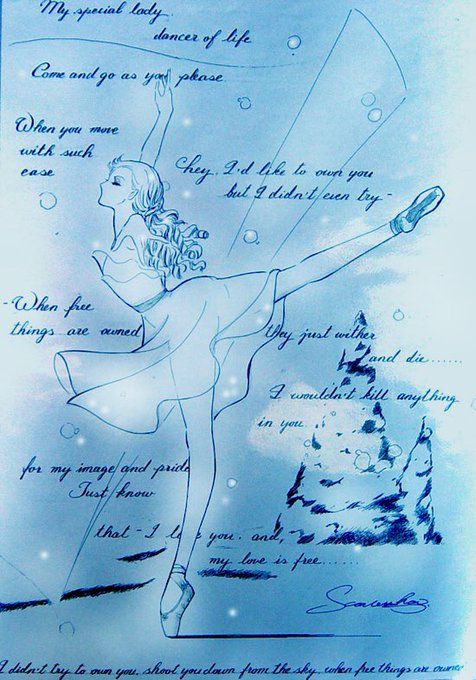 My special lady
dancer of life
Come and go as you please
When you move
with such
ease
Chey, I'd like to own you
but I didn't even try-
-When free
things are owned
they just wither
and die......
I wouldn't kill anything
in you...
for my image and pride
Just know
that - I love you. and,
my love is free......
I didn't try to own you, shoot you down from the sky, when free things are owned